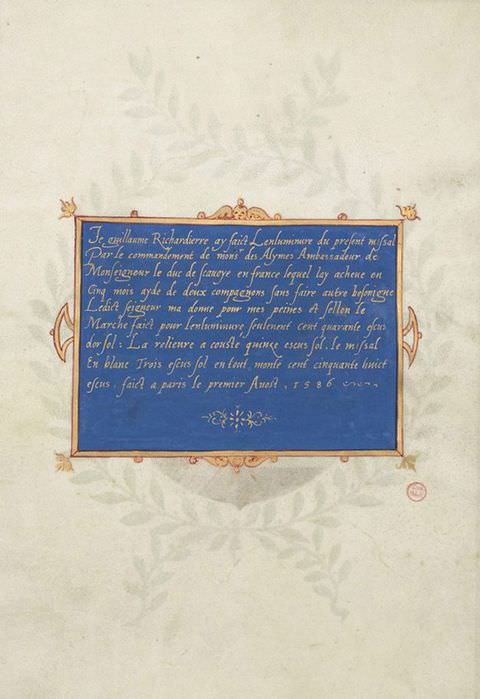 Je guillaume Richardierre ay faict Lenlumnure du present missal
Par le commandement de monsr des Alymes Ambassadeur de
Monseigneur le duc de scavoye en france lequel Jay acheue en
Cinq mois ayde de deux compagnons sans faire autre besonigne
Ledict seigneur ma donne pour mes peines et sellon le
Marche faict pour lenluminure seulement cent quarante escus
dor sol : La relieure a couste quinze escus sol . le missal
En blanc Trois escus sol en tout monte cent cinquante huict
escus . faict a paris le premier Auost , 1586